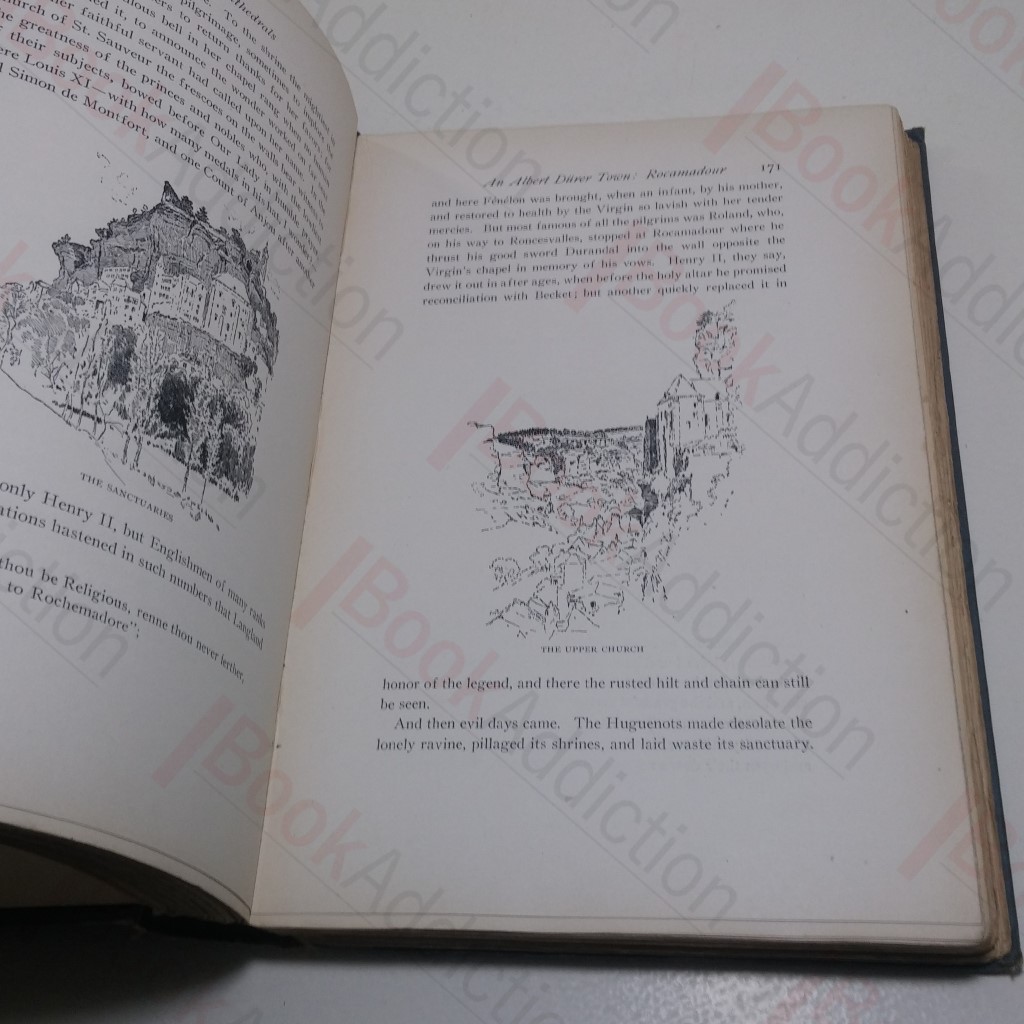 thedrals
pilgrimage. To the shrine the
ers to return thanks for
ulous bell in her chapel rang
ed it, to announce the wonder
her faithful servant had called upon her name. Here
urch of St. Sauveur the frescoes worked on its walls
the greatness of the princes and nobles who, with the lowliest
their subjects, bowed before Our Lady, in humble prayer
ere Louis XI—with how many medals in his hat, I wonder
d Simon de Montfort, and one Count of Anjou after another
THE SANCTUARIES
only Henry II, but Englishmen of many ranks
ations hastened in such numbers that Langland
thou be Religious, renne thou never ferther,
to Rochemadore";
An Albert Dürer Town: Rocamadour 171
and here Fénélon was brought, when an infant, by his mother,
and restored to health by the Virgin so lavish with her tender
mercies. But most famous of all the pilgrims was Roland, who,
on his way to Roncesvalles, stopped at Rocamadour where he
thrust his good sword Durandal into the wall opposite the
Virgin's chapel in memory of his vows. Henry II, they say,
drew it out in after ages, when before the holy altar he promised
reconciliation with Becket; but another quickly replaced it in
THE UPPER CHURCH
honor of the legend, and there the rusted hilt and chain can still
be seen.
And then evil days came. The Huguenots made desolate the
lonely ravine, pillaged its shrines, and laid waste its sanctuary.
BookAddiction